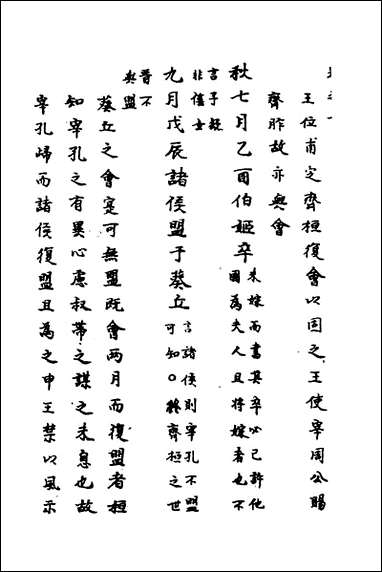 王位甫定齊桓復會以固之王使宰周公賜
齊胙故亦與會
秋七月乙酉伯姬卒未嫁而書其卒必已許他
國為夫人且將嫁者也不
言子疑
非僖女
九月戊辰諸侯盟于葵丘言諸侯則宰孔不盟
可知○終齊桓之世
晉不
與盟
葵丘之會寔可無盟既會两月而復盟者桓
知宰孔之有異心慮叔帶之謀之未息也故
宰孔歸而諸侯復盟且為之申王禁以風示